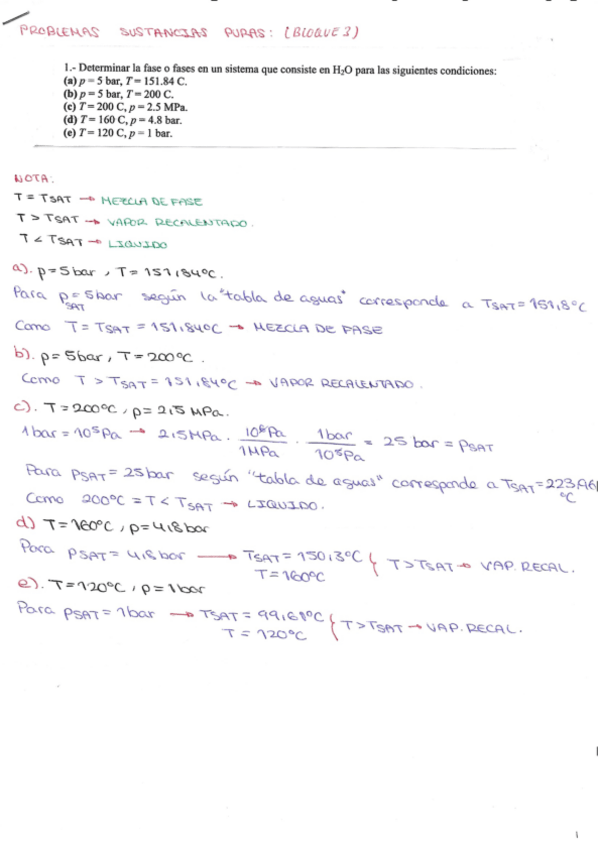 PROBLEMAS SUSTANCIAS PURAS: (BLOQUE 3)
1.- Determinar la fase o fases en un sistema que consiste en H₂O para las siguientes condiciones:
(a) p = 5 bar, T = 151.84 C.
(b) p = 5 bar, T = 200 C.
(c) T = 200 C, p = 2.5 MPa.
(d) T = 160 C, p = 4.8 bar.
(e) T = 120 C, p = 1 bar.
NOTA:
T = TSAT → MEZCLA DE FASE
T > TSAT → VAPOR RECALENTADO.
T < TSAT → LIQUIDO
a). p=5bar, T=151,84ºC.
Para pSAT=5bar según la "tabla de aguas" corresponde a TSAT=151,8ºC
Como T=TSAT=151,84ºC → MEZCLA DE FASE
b). p=5bar, T=200ºC.
Como T>TSAT=151,84ºC → VAPOR RECALENTADO.
c). T=200ºC, p=2,5 MPa.
1bar=10⁵Pa → 2,5MPa · 10⁶Pa/1MPa · 1bar/10⁵Pa = 25 bar = pSAT
Para pSAT=25bar según "tabla de aguas" corresponde a TSAT=223,96ºC
Como 200ºC=T<TSAT → LIQUIDO.
d) T=160ºC, p=4,8bar
Para pSAT=4,8bar → TSAT=150,3ºC
T=160ºC } T>TSAT → VAP. RECAL.
e). T=120ºC, p=1bar
Para pSAT=1bar → TSAT=99,61ºC
T=120ºC } T>TSAT → VAP. RECAL.
1